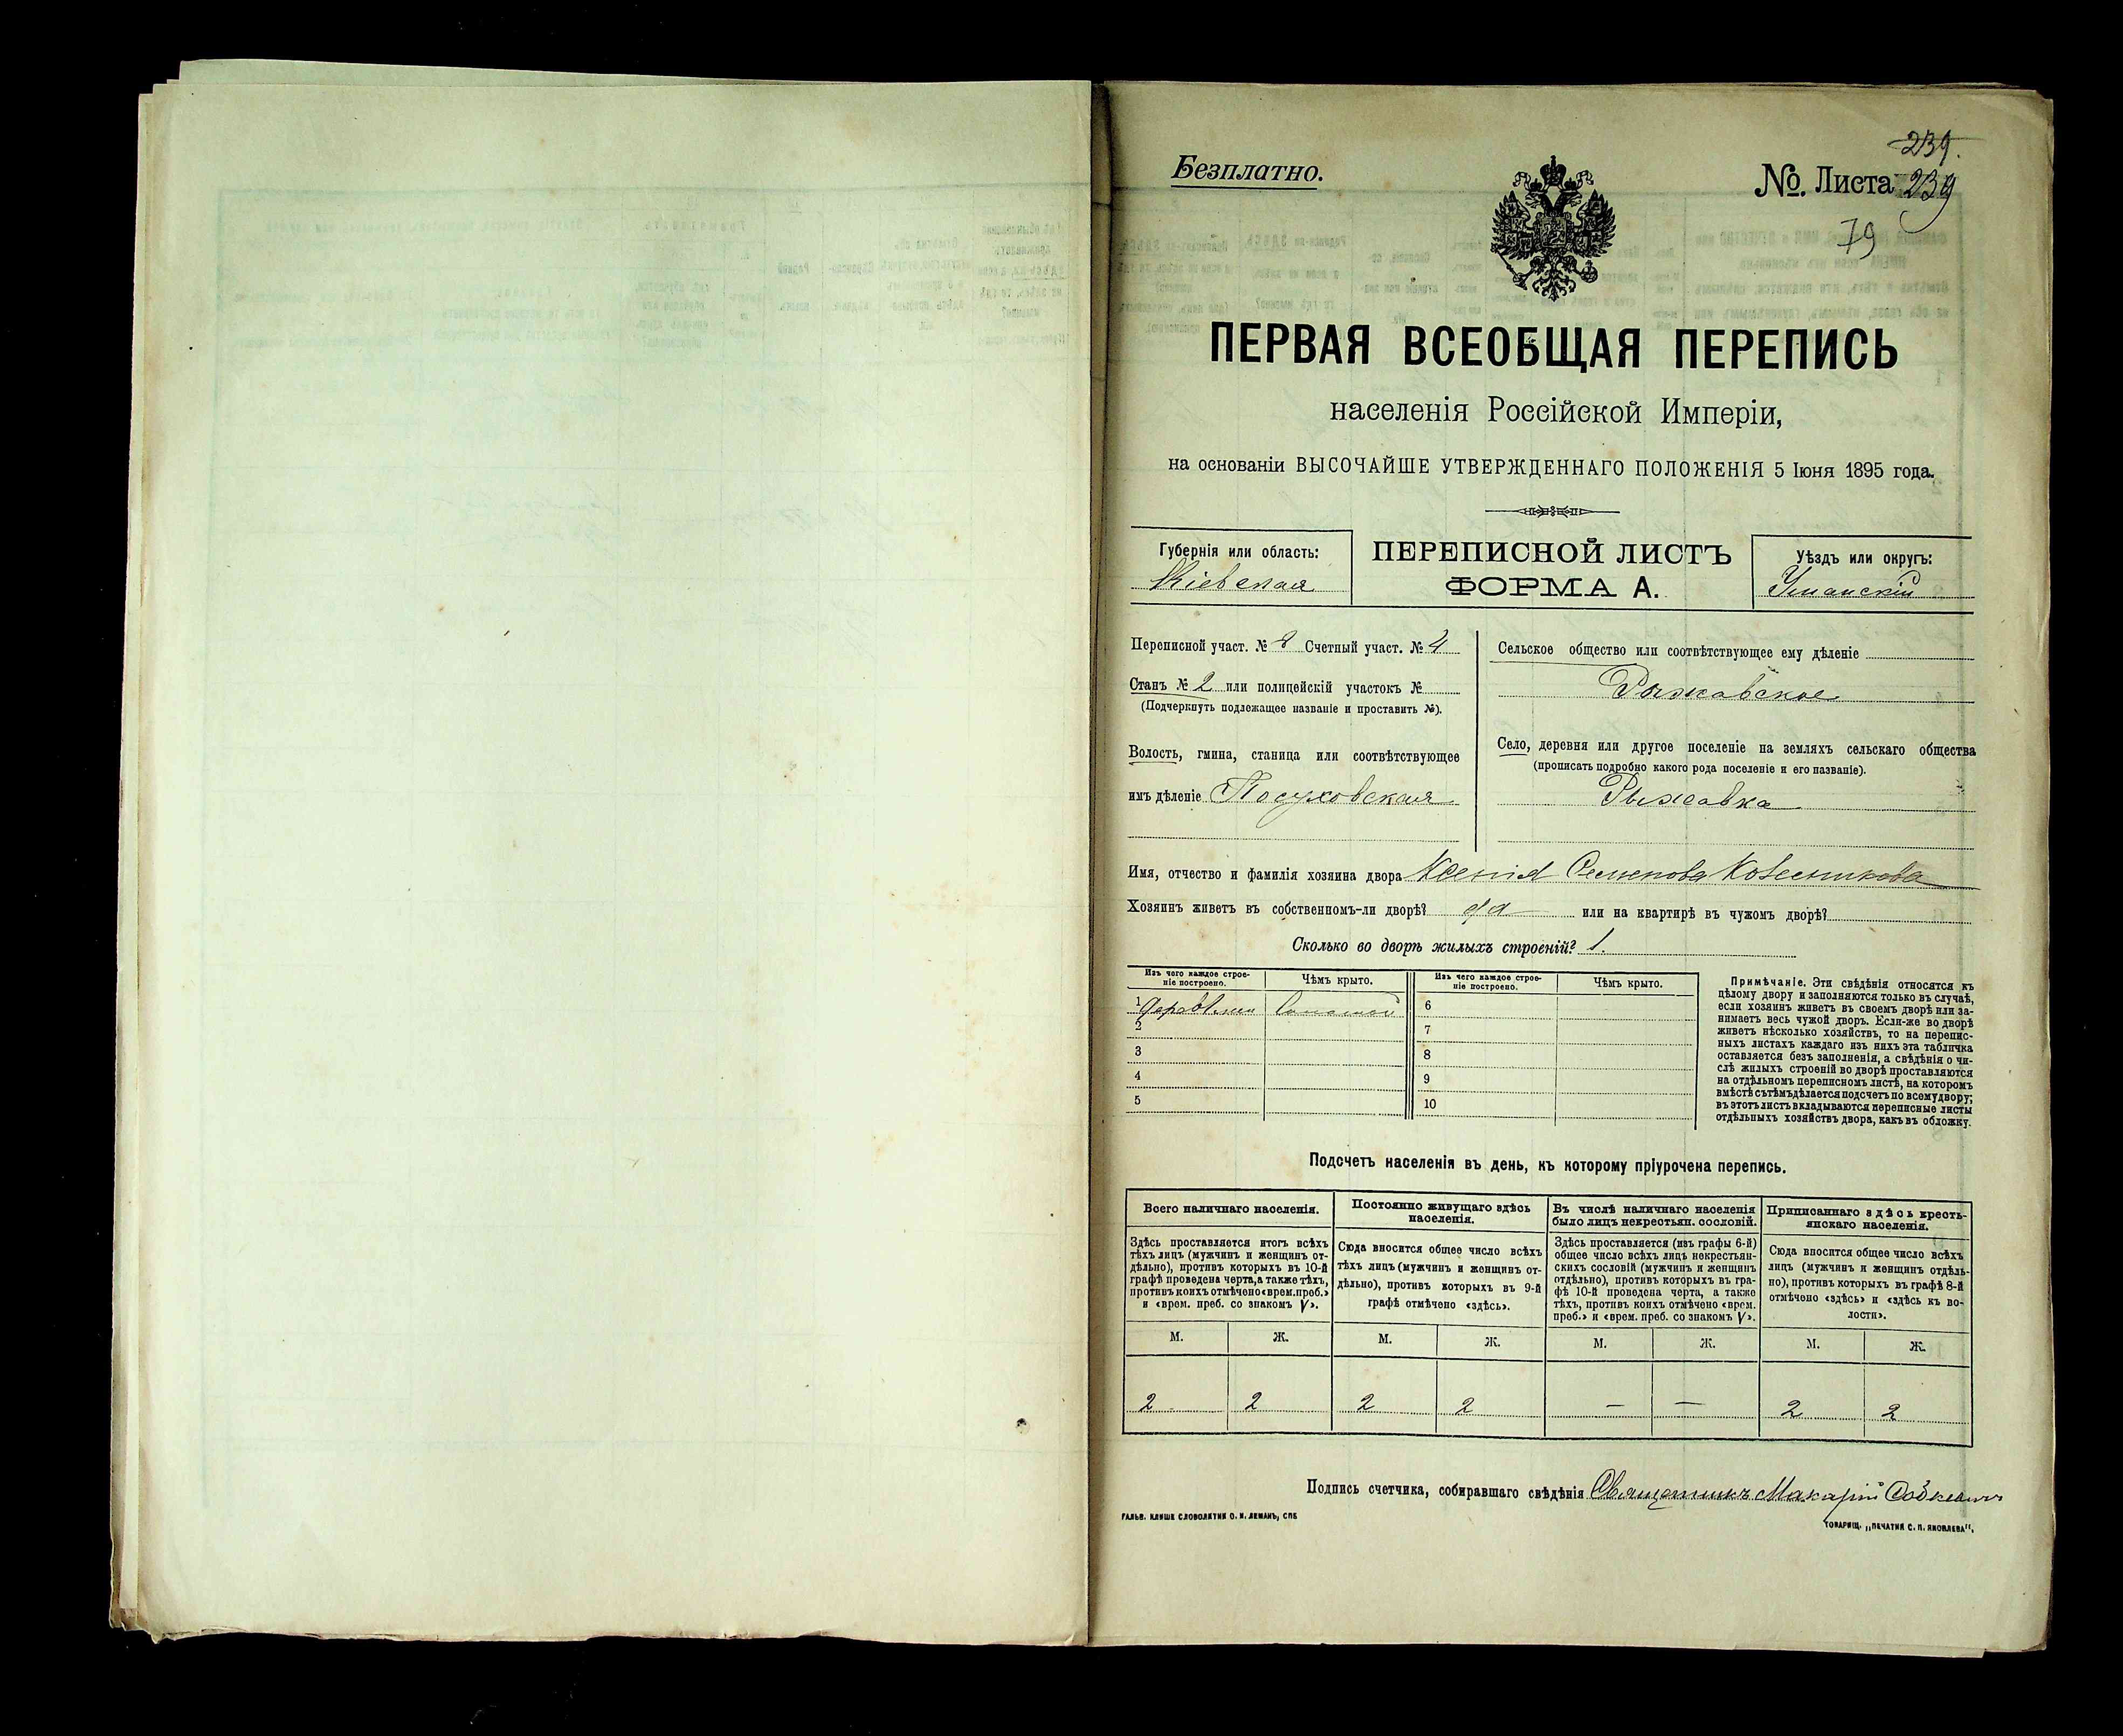 239.
Безплатно.
№. Листа 239
79
ПЕРВАЯ ВСЕОБЩАЯ ПЕРЕПИСЬ
населенія Россійской Имперіи,
на основаніи ВЫСОЧАЙШЕ УТВЕРЖДЕННАГО ПОЛОЖЕНІЯ 5 Іюня 1895 года.
Губернія или область:
Кіевская
ПЕРЕПИСНОЙ ЛИСТЪ
ФОРМА А.
Уѣздъ или округъ:
Уманскій
Переписной участ. № 8 Счетный участ. № 4
Станъ № 2 или полицейскій участокъ №
(Подчеркнуть подлежащее названіе и проставить №).
Волость, гмина, станица или соотвѣтствующее
имъ дѣленіе Посуховская
Сельское общество или соотвѣтствующее ему дѣленіе
Рыжавское
Село, деревня или другое поселеніе на земляхъ сельскаго общества
(прописать подробно какого рода поселеніе и его названіе).
Рыжавка
Имя, отчество и фамилія хозяина двора Ксенія Семенова Колесникова
Хозяинъ живетъ въ собственномъ-ли дворѣ? да или на квартирѣ въ чужомъ дворѣ?
Сколько во дворѣ жилыхъ строеній? 1.
Изъ чего каждое строе-
ніе построено.
Чѣмъ крыто.
Изъ чего каждое строе-
ніе построено.
Чѣмъ крыто.
1 Соломой 6
2 7
3 8
4 9
5 10
Примѣчаніе. Эти свѣдѣнія относятся къ
цѣлому двору и заполняются только въ случаѣ,
если хозяинъ живетъ въ своемъ дворѣ или за-
нимаетъ весь чужой дворъ. Если-же во дворѣ
живетъ нѣсколько хозяйствъ, то на перепис-
ныхъ листахъ каждаго изъ нихъ эта табличка
оставляется безъ заполненія, а свѣдѣнія о чи-
слѣ жилыхъ строеній во дворѣ проставляются
на отдѣльномъ переписномъ листѣ, на которомъ
вмѣстѣ съ тѣмъ дѣлается подсчетъ по всему двору;
въ этотъ листъ вкладываются переписные листы
отдѣльныхъ хозяйствъ двора, какъ въ обложку.
Подсчетъ населенія въ день, къ которому пріурочена перепись.
Всего наличнаго населенія.
Здѣсь проставляется итогъ всѣхъ
тѣхъ лицъ (мужчинъ и женщинъ от-
дѣльно), противъ которыхъ въ 10-й
графѣ проведена черта, а также тѣхъ,
противъ коихъ отмѣчено «врем. преб.»
и «врем. преб. со знакомъ V».
Постоянно живущаго здѣсь
населенія.
Сюда вносится общее число всѣхъ
тѣхъ лицъ (мужчинъ и женщинъ от-
дѣльно), противъ которыхъ въ 9-й
графѣ отмѣчено «здѣсь».
Въ числѣ наличнаго населенія
было лицъ некрестьян. сословій.
Здѣсь проставляется (изъ графы 6-й)
общее число всѣхъ лицъ некрестьян-
скихъ сословій (мужчинъ и женщинъ
отдѣльно), противъ которыхъ въ гра-
фѣ 10-й проведена черта, а также
тѣхъ, противъ коихъ отмѣчено «врем.
преб.» и «врем. преб. со знакомъ V».
Приписаннаго здѣсь кресть-
янскаго населенія.
Сюда вносится общее число всѣхъ
лицъ (мужчинъ и женщинъ отдѣль-
но), противъ которыхъ въ графѣ 8-й
отмѣчено «здѣсь» и «здѣсь къ во-
лости».
М. Ж. М. Ж. М. Ж. М. Ж.
2 2 2 2 — — 2 2
Подпись счетчика, собиравшаго свѣдѣнія Священникъ Макарій
ГАЛЬВ. КЛИШЕ СЛОВОЛИТНИ О. И. ЛЕМАНЪ, СПБ
ТОВАРИЩ. „ПЕЧАТНЯ С. П. ЯКОВЛЕВА“.